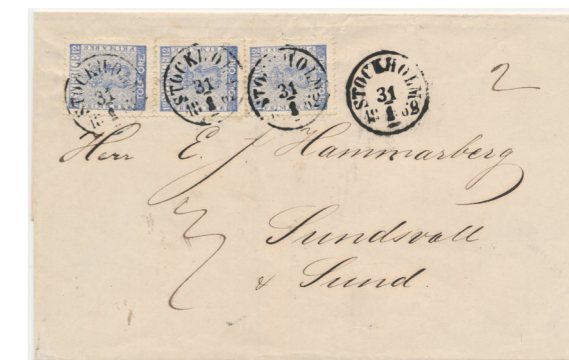 STOCKHOLM 31 1 STOCKHOLM 31 1 STOCKHOLM 31 1 STOCKHOLM 31 1 1862 2
Herr E. J. Hammarberg
Sundsvall
& Sund.